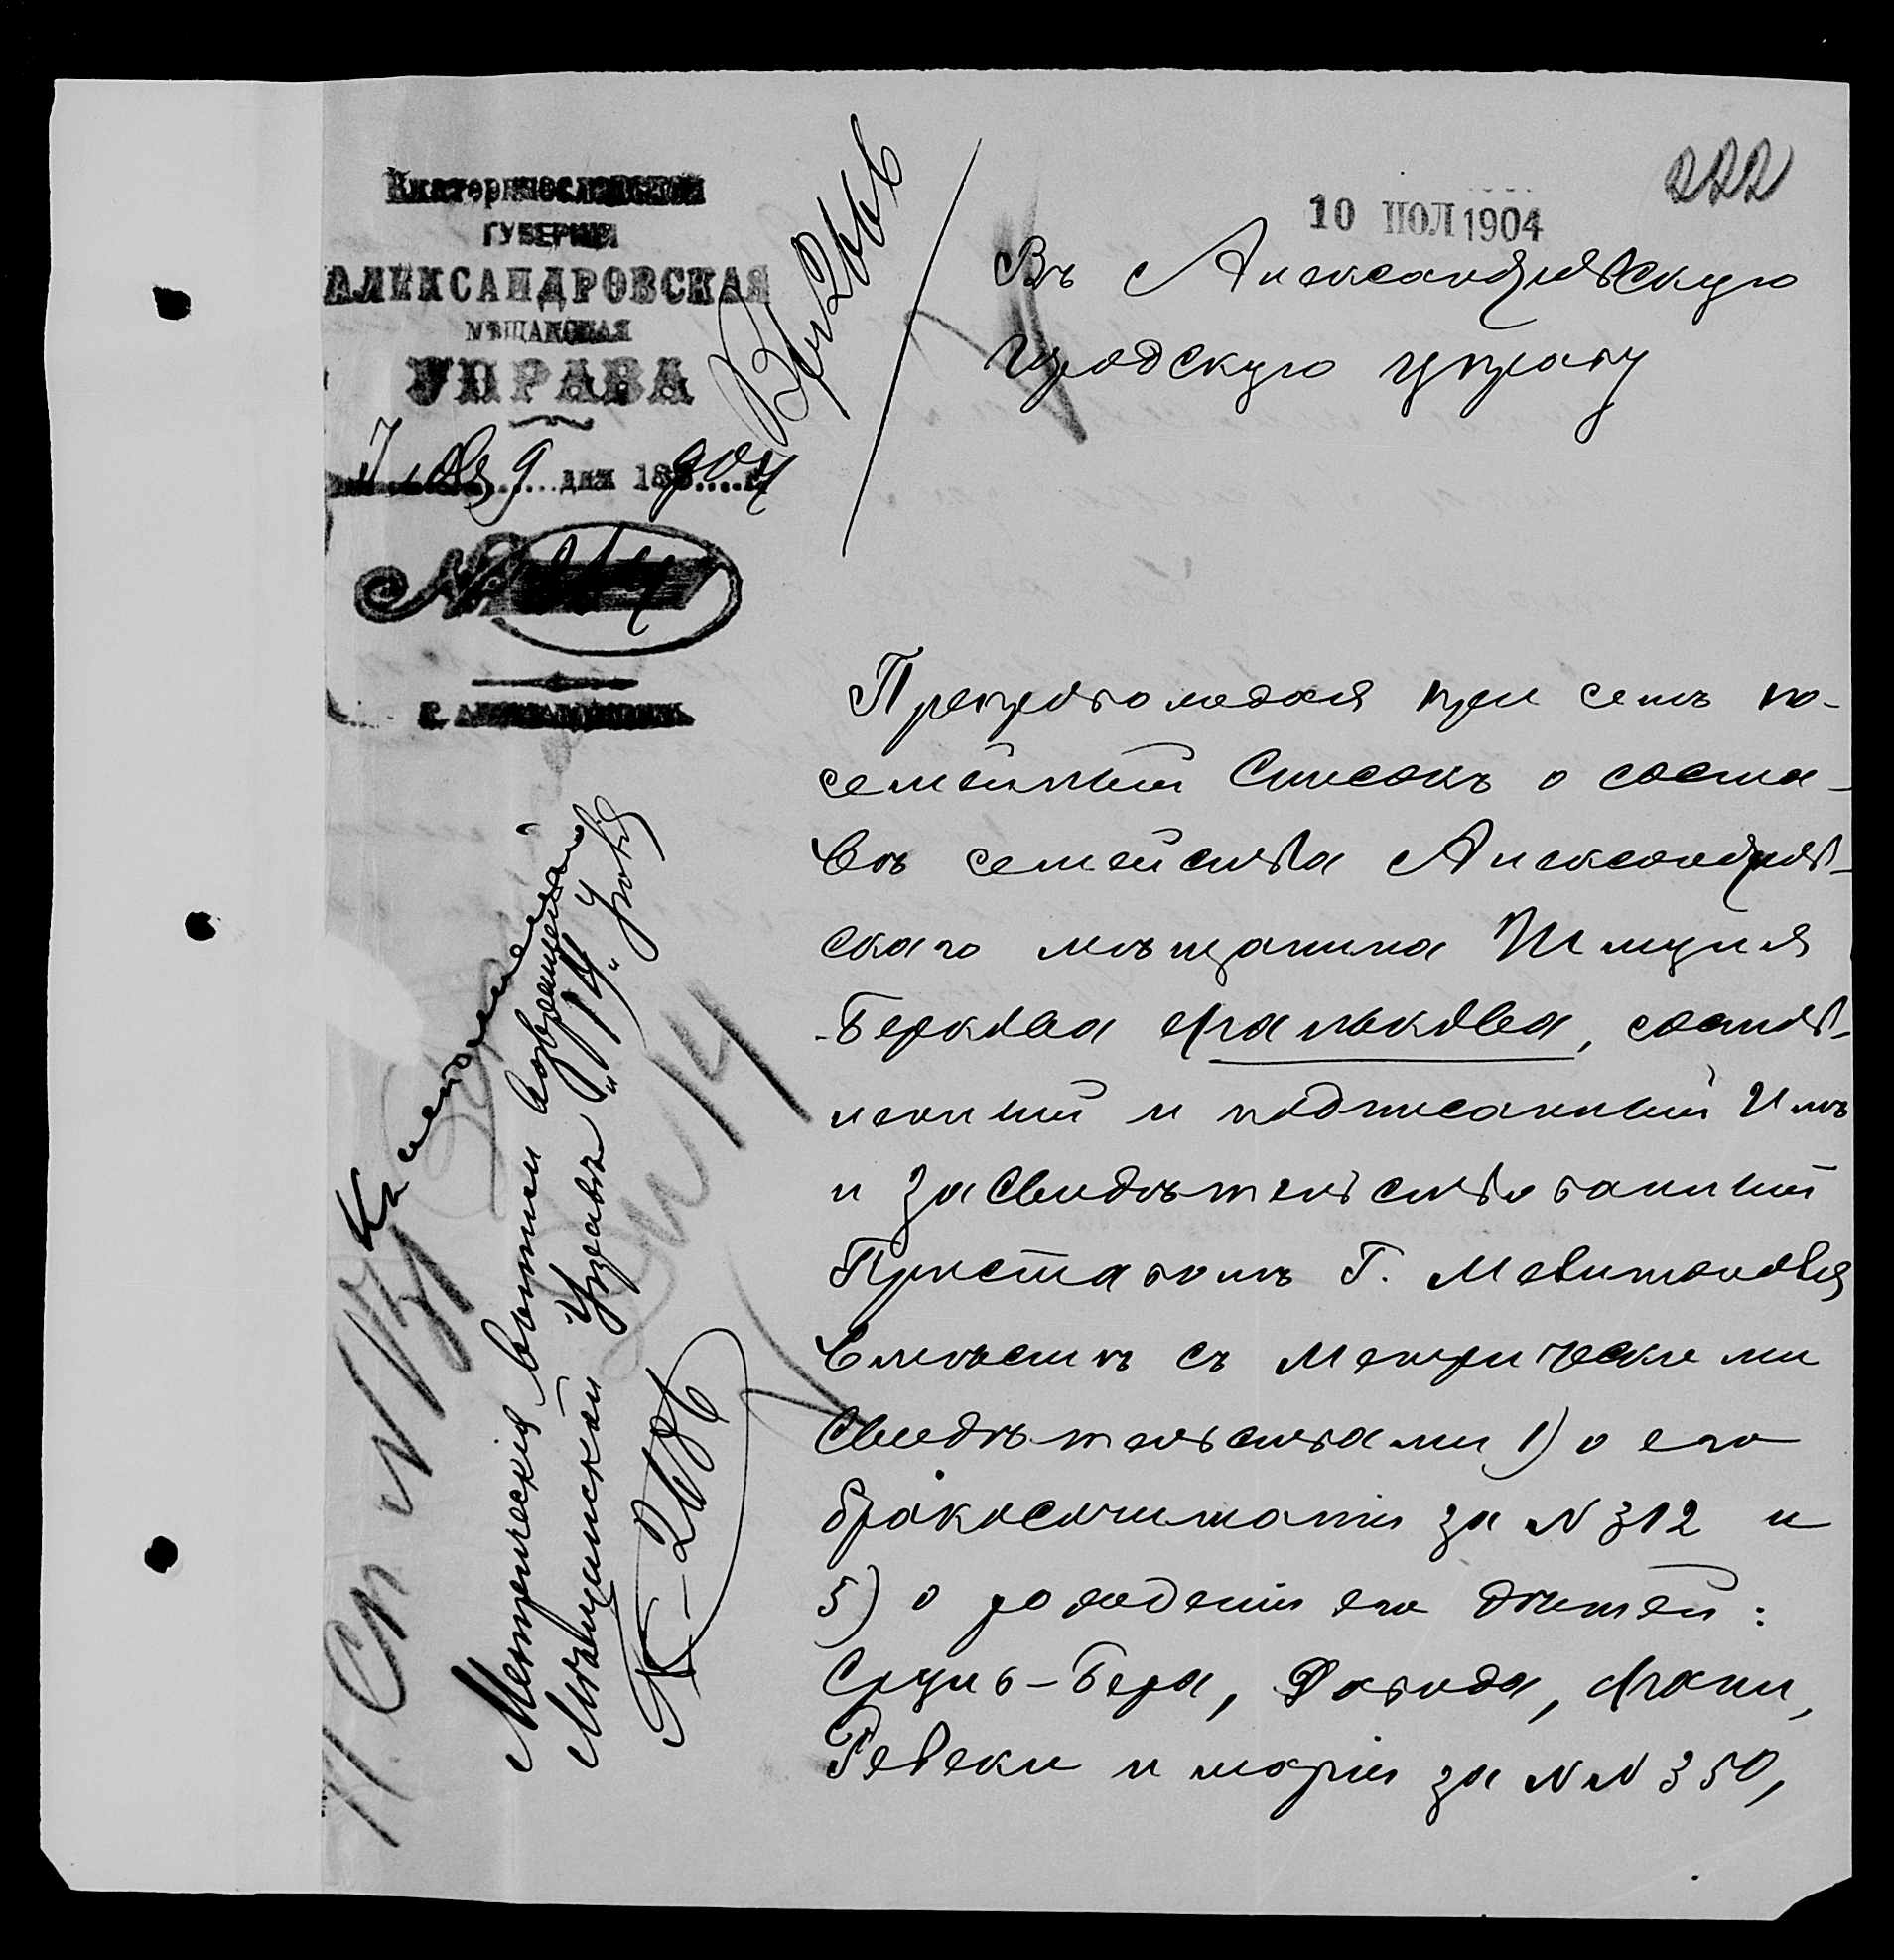 Екатеринославской
ГУБЕРНИИ
АЛЕКСАНДРОВСКАЯ
МѢЩАНСКАЯ
УПРАВА
9 дня 1904 г.
№
Г. АЛЕКСАНДРОВСКЪ
222
10 ІЮЛ 1904
Въ Александровскую
городскую управу
Препровождая при семъ по-
семейный Списокъ о соста-
вѣ семейства Александров-
скаго мѣщанина Шмуля
Беркова Фалькова, состав-
ленный и подписанный Имъ
и засвидѣтельствованный
Приставомъ Г.
Вмѣстѣ съ Метрическими
Свидѣтельствами 1) о его
бракосочитаніи за N 312 и
5) о рожденіи его дѣтей:
Сруль-Бера, Давида, Фани,
Ревеки и маріи за NN 350,
Метрическія выписи возвращены
Мѣщанской Управѣ „14" Іюля
Вх 2666
Къ исполненію
14
Н. Сп N